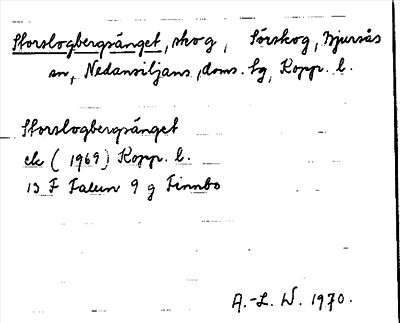 Storslogbergsänget, skog, Sörskog, Bjursås
sn, Nedansiljans doms. tg, Kopp. l.
Storslogbergsänget
ek (1969) Kopp. l.
13 F Falun 9 g Finnbo
A.-L. W. 1970.